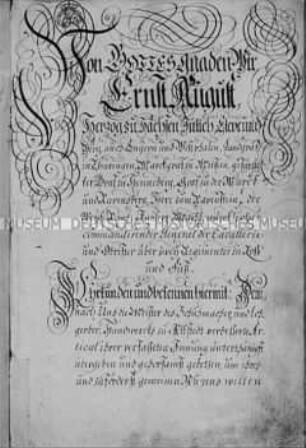 Von GOTTES Gnaden Wir
Ernst August,
Hertzog zu Sachsen, Jülich, Cleve und
Berg, auch Engern und Westphalen, Landgraf
in Thüringen, Marckgraf in Meißen, gefürste-
ter Graf zu Henneberg, Graf zu der Marck
und Ravensberg, Herr zum Ravenstein, der
Commandirender General der Cavallerie
und Obrister über zwey Regimenter zu Roß
und Fuß.
MUSEUM DEUTSCHES MUSEUM
Uhrkunden und bekennen hiermit: Dem-
nach Uns die Meister des Schuhmacher und Loh-
gerber Handwercks zu Allstedt
Articul ihrer verfaßeten Innung unterthänigst
übergeben und gehorsamst gebethen, um ihres
willen